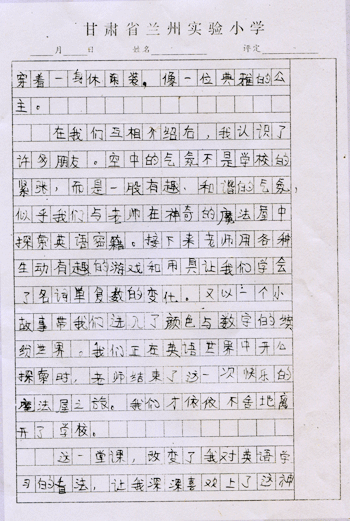 甘肃省兰州实验小学
月 日 姓名 评定
穿着一身休闲装，像一位典雅的公
主。
在我们互相介绍后，我认识了
许多朋友。空中的气氛不是学校的
紧张，而是一股有趣、和谐的气氛，
似乎我们与老师在神奇的魔法屋中
探索英语密籍。接下来老师用各种
生动有趣的游戏和用具让我们学会
了名词单复数的变化。又以一个小
故事带我们进入了颜色与数字的缤
纷世界。我们正在英语世界中开心
探索时，老师结束了这一次快乐的
魔法屋之旅。我们才依依不舍地离
开了学校。
这一堂课，改变了我对英语学
习的看法，让我深深喜欢上了这神